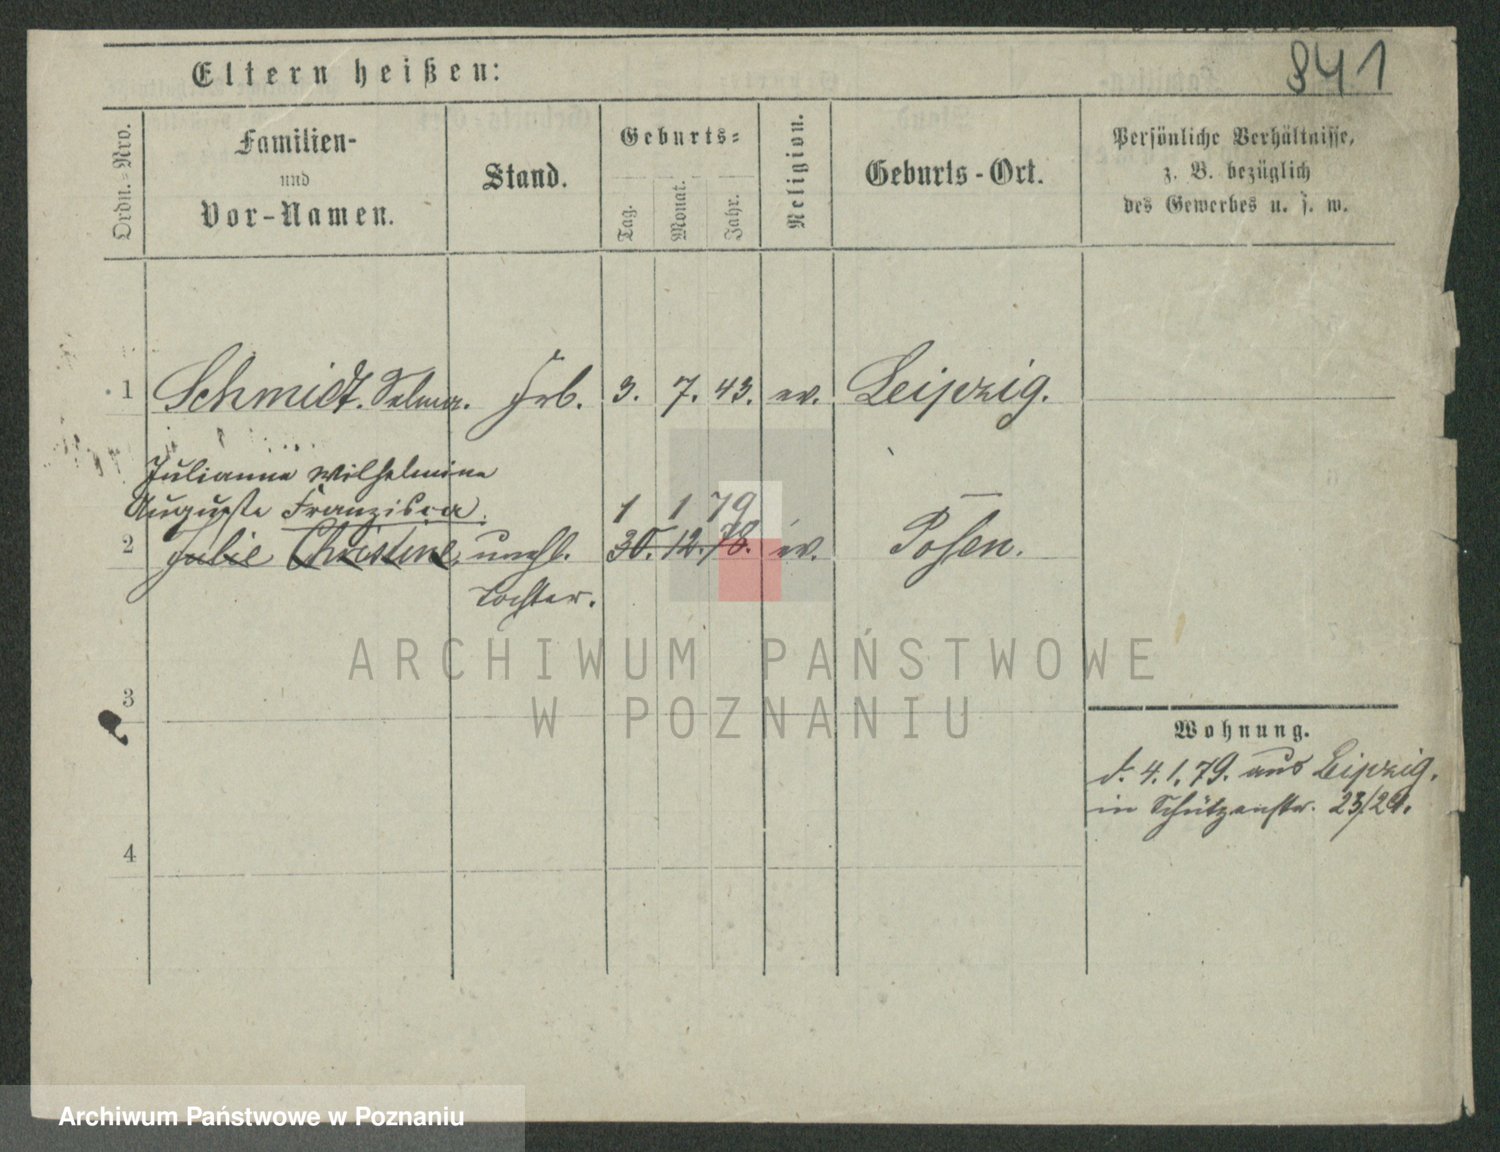 841
Eltern heißen:
Ordn.=Nro.
Familien-
und
Vor-Namen.
Stand.
Geburts=
Tag.
Monat.
Jahr.
Religion.
Geburts-Ort.
Persönliche Verhältnisse,
z. B. bezüglich
des Gewerbes u. s. w.
1 Schmidt. Selma. Frl. 3. 7. 43. ev. Leipzig.
Julianne Wilhelmine
Auguste Franzisca. 1 1 79
2 Julie Christine, unehl. 30. 12. 78. ev. Posen.
Tochter.
ARCHIWUM PAŃSTWOWE
W POZNANIU
3
Wohnung.
d. 4. 1. 79. aus Leipzig.
in Schützenstr. 23/24.
4
Archiwum Państwowe w Poznaniu